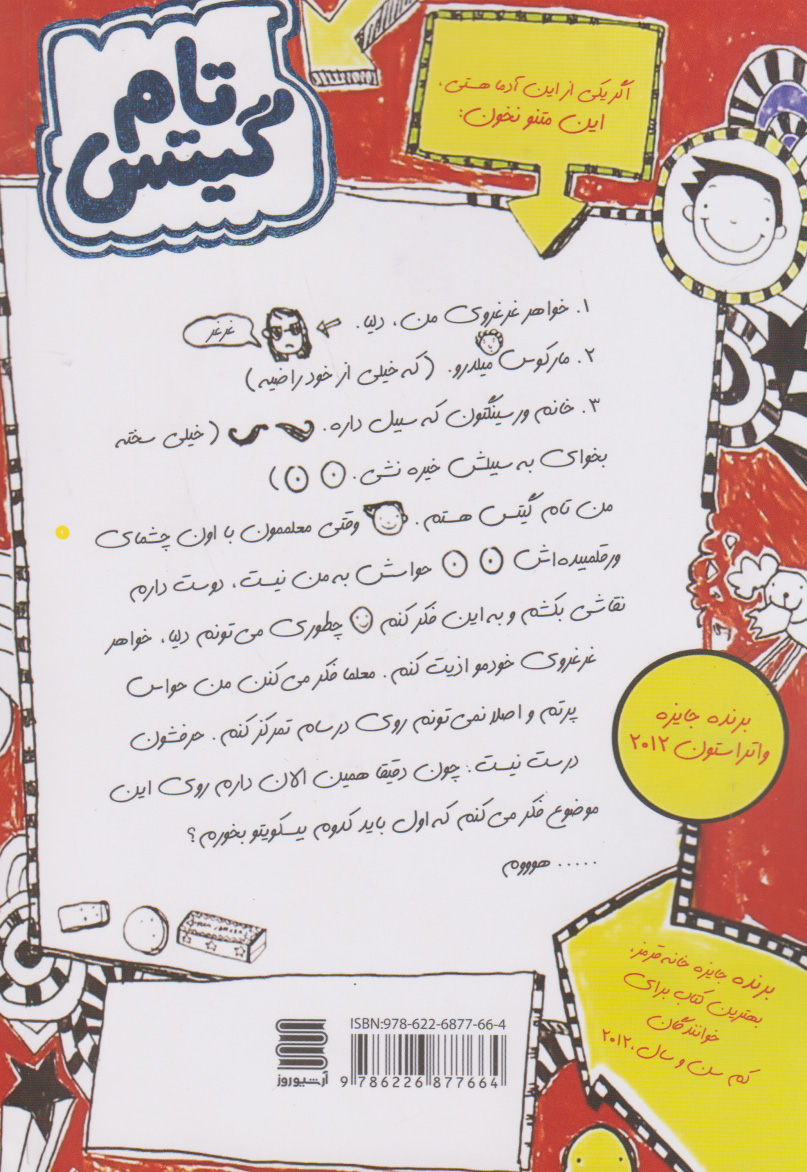 تام
گیتس
اگر یکی از این آدما هستی،
این متنو نخون:
۱. خواهر غرغروی من، دلیا.
غرغر
۲. مارکوس میلدرو. (که خیلی از خود راضیه)
۳. خانم ورسینگتون که سیبیل داره. (خیلی سخته
بخوای به سیبلش خیره نشی.)
من تام گیتس هستم. وقتی معلممون با اون چشمای
ورقلمبیده‌اش حواسش به من نیست، دوست دارم
نقاشی بکشم و به این فکر کنم چطوری می‌تونم دلیا، خواهر
غرغروی خودمو اذیت کنم. معلما فکر می‌کنن من حواس
پرتم و اصلا نمی‌تونم روی درسام تمرکز کنم. حرفشون
درست نیست؛ چون دقیقا همین الان دارم روی این
موضوع فکر می‌کنم که اول باید کدوم بیسکویتو بخورم؟
..... هوووم
برنده جایزه
واتراستون ۲۰۱۲
برنده جایزه خانه قرمز،
بهترین کتاب برای
خوانندگان
کم سن و سال، ۲۰۱۲
ISBN:978-622-6877-66-4
9 786226 877664
آرسیوروز